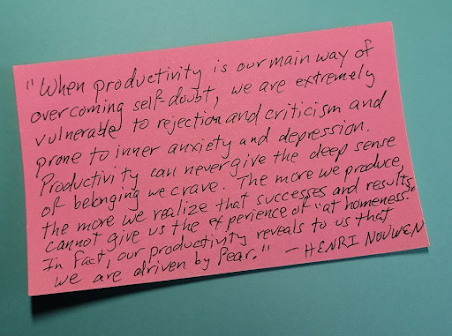 "When productivity is our main way of
overcoming self-doubt, we are extremely
vulnerable to rejection and criticism and
prone to inner anxiety and depression.
Productivity can never give the deep sense
of belonging we crave. The more we produce,
the more we realize that successes and results
cannot give us the experience of "at homeness."
In fact, our productivity reveals to us that
we are driven by fear." — HENRI NOUWEN